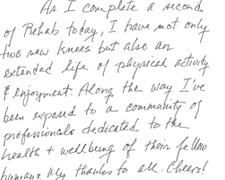 As I complete a second
of Rehab today, I have not only
two new knees but also an
extended life of physical activity
& enjoyment. Along the way I've
been exposed to a community of
professionals dedicated to the
health + wellbeing of their fellow
humans. My thanks to all. Cheers!